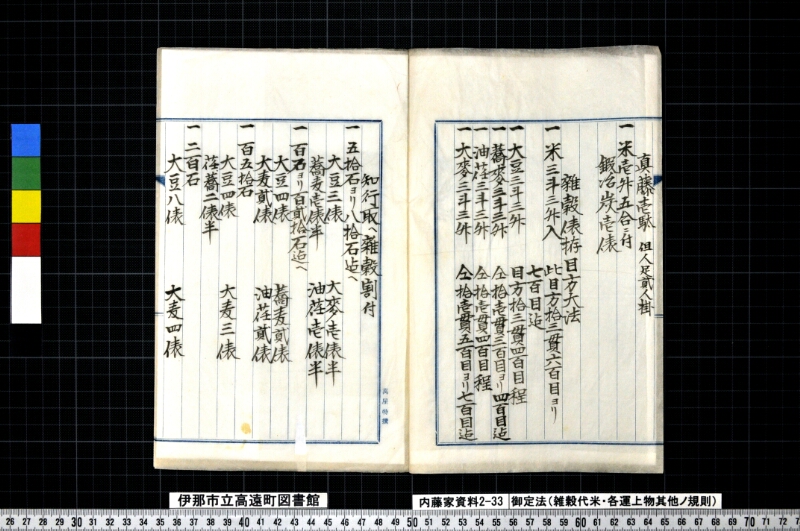 真藤壱駄 但人足貳人掛
一 米壱升五合ニ付
鍛冶炭壱俵
雑穀俵拵目方大法
一 米三斗三升入 此目方拾三貫六百目ヨリ
七百目迠
一 大豆三斗三升 目方拾三貫四百目程
一 蕎麥三斗三升 仝拾壱貫三百目ヨリ四百目迠
一 油荏三斗三升 仝拾壱貫四百目程
一 大麥三斗三升 仝拾壱貫五百目ヨリ七百目迠
知行取ヘ雑穀割付
一 五拾石ヨリ八拾石迠ヘ
大豆三俵 大麥壱俵半
蕎麦壱俵半 油荏壱俵半
一 百石ヨリ百貳拾石迠ヘ
大豆四俵 蕎麦貳俵
大麦貳俵 油荏貳俵
一 百五拾石
大豆四俵 大麦三俵
荏蕎二俵半
一 二百石
大豆八俵 大麦四俵
伊那市立高遠町図書館
内藤家資料2-33 御定法(雑穀代米・各運上物其他ノ規則)
26 27 28 29 30 31 32 33 34 35 36 37 38 39 40 41 42 43 44 45 46 47 48 49 50 51 52 53 54 55 56 57 58 59 60 61 62 63 64 65 66 67 68 69 70 71 72